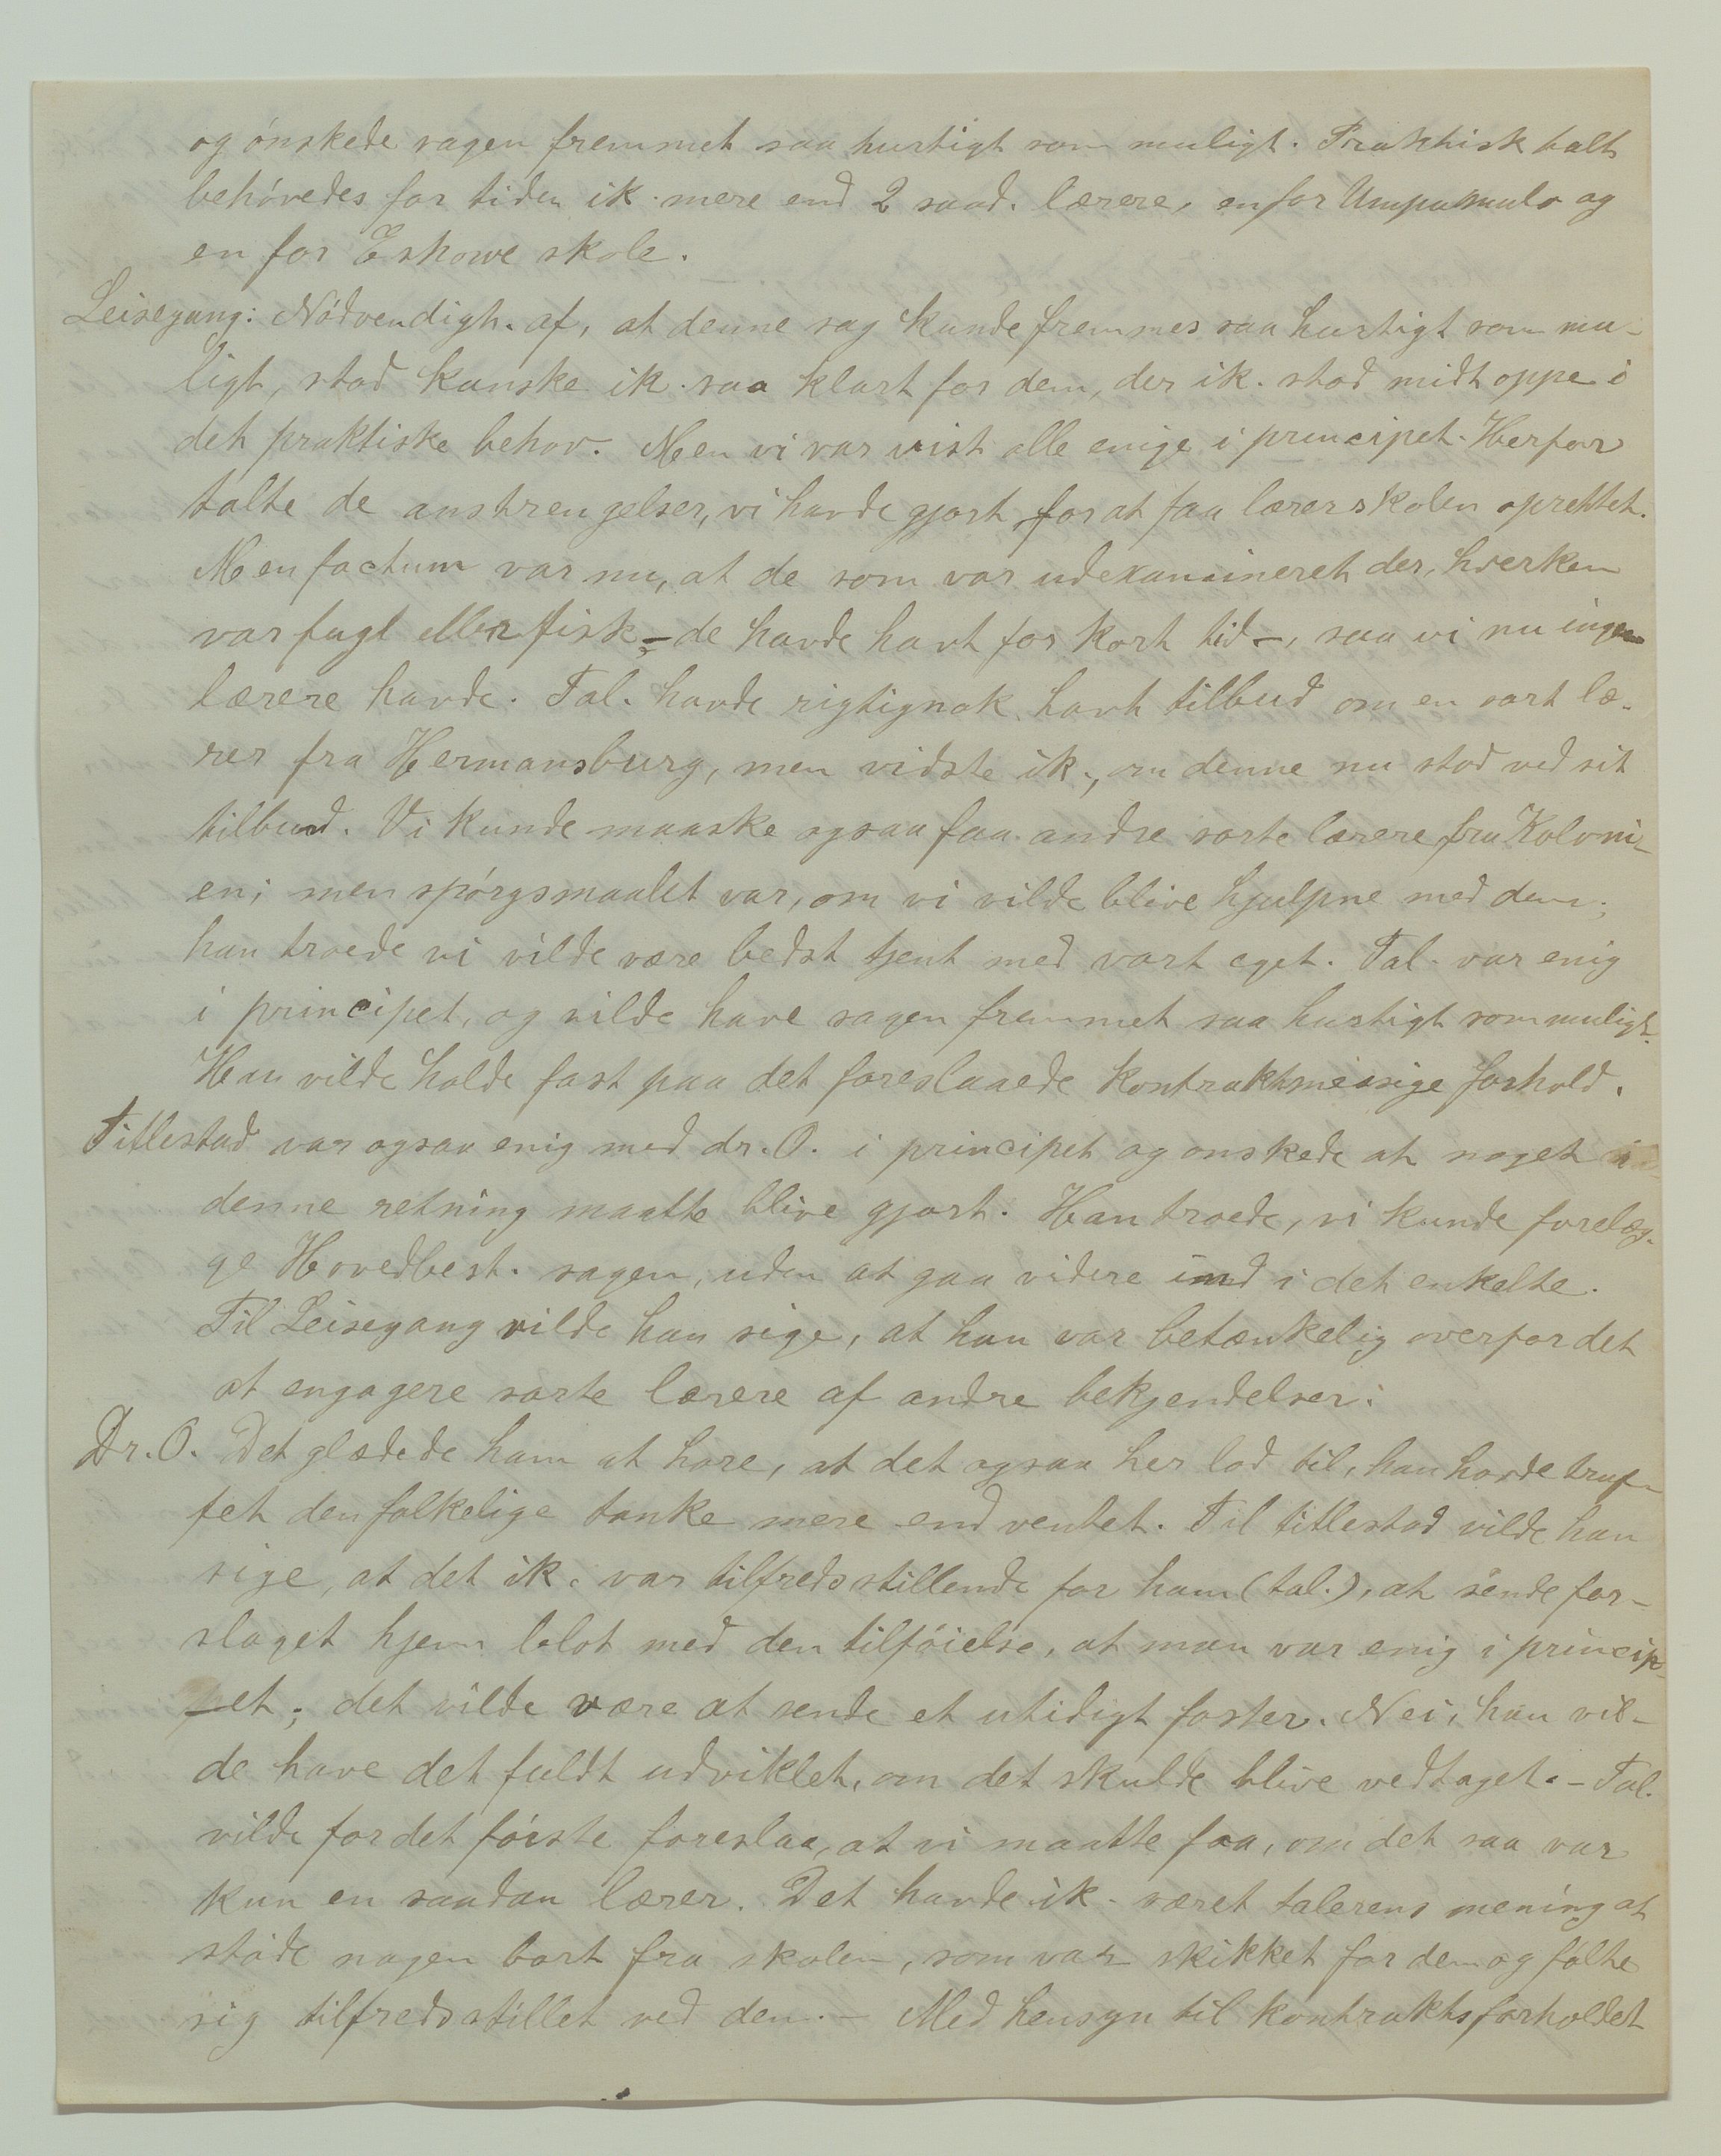 og ónskede sagen fremmet saa hurtigt som muligt. Praktisk talt
behóvedes for tiden ik. mere end 2 saad. lærere, en for Umpumulo og
en for Eshowe skole.
Leisegang: Nódvendigh. af, at denne sag kunde fremmes saa hurtigt som mu-
ligt, stod kanske ik. saa klart for dem, der ik. stod midt oppe i
det praktiske behov. Men vi var vist alle enige i principet. Herfor
talte de anstrengelser, vi havde gjort for at faa lærerskolen oprettet.
Men factum var nu, at de som var udexamineret der, hverken
var fugl eller fisk - de havde havt for kort tid -, saa vi nu ingen
lærere havde. Tal. havde rigtignok havt tilbud om en sort læ-
rer fra Hermansburg, men vidste ik., om denne nu stod ved sit
tilbud. Vi kunde maaske ogsaa faa andre sorte lærere fra Koloni-
en; men spórgsmaalet var, om vi vilde blive hjulpne med dem;
han troede vi vilde være bedst tjent med vort eget. Tal. var enig
i principet, og vilde have sagen fremmet saa hurtigt som muligt.
Han vilde holde fast paa det foreslaaede kontraktmessige forhold.
Titlestad var ogsaa enig med dr. O. i principet og onskede at noget i
denne retning maatte blive gjort. Han troede, vi kunde forelæg-
ge Hovedbest. sagen, uden at gaa videre ind i det enkelte.
Til Leisegang vilde han sige, at han var betænkelig overfor det
at engagere sorte lærere af andre bekjendelser.
Dr. O. Det glædede ham at hore, at det ogsaa her lod til, han havde truf-
fet den folkelige tanke mere end ventet. Til titlestad vilde han
sige, at det ik. var tilfredsstillende for ham (tal.), at sende for-
slaget hjem blot med den tilfóielse, at man var enig i princip-
pet; det vilde være at sende et utidigt foster. Nei, han vil-
de have det fuldt udviklet, om det skulde blive vedtaget. - Tal.
vilde for det fórste foreslaa, at vi maatte faa, om det saa var
kun en saadan lærer. Det havde ik. været talerens mening at
stóde nogen bort fra skolen, som var skikket for den og fólte
sig tilfredsstillet ved den. - Med hensyn til kontraktsforholdet